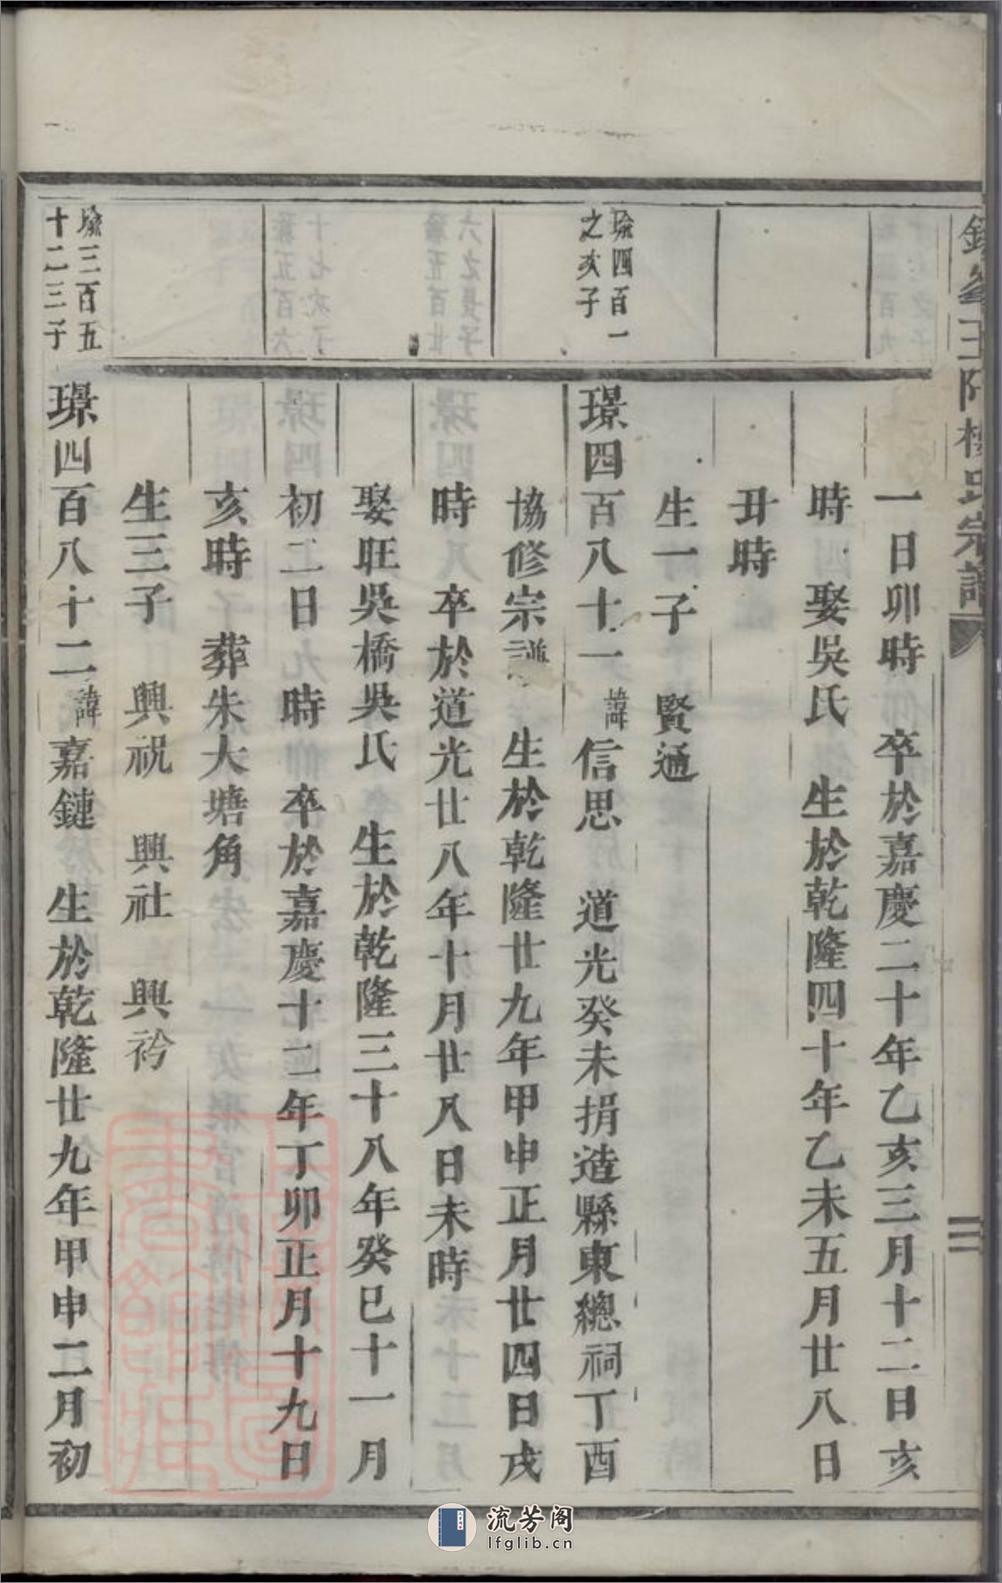 王阡樓氏宗譜
一日卯時　卒於嘉慶二十年乙亥三月十二日亥
時　娶吳氏　生於乾隆四十年乙未五月廿八日
丑時
生一子　賢通
瑜四百一
之次子
璟四百八十一諱信思　道光癸未捐造縣東總祠丁酉
協修宗譜　生於乾隆廿九年甲申正月廿四日戌
時　卒於道光廿八年十月廿八日未時
娶旺吳橋吳氏　生於乾隆三十八年癸巳十一月
初二日　時　卒於嘉慶十二年丁卯正月十九日
亥時　葬朱大塘角
生三子　興祝　興社　興衿
瑜三百五
十二三子
璟四百八十二諱嘉鏈　生於乾隆廿九年甲申二月初
流芳阁
lfglib.cn